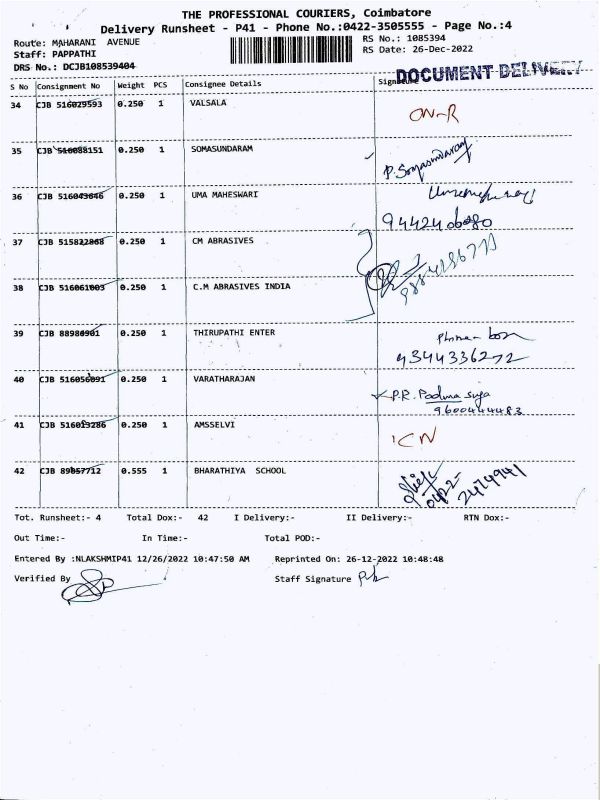 THE PROFESSIONAL COURIERS, Coimbatore
Delivery Runsheet - P41 - Phone No.:0422-3505555 - Page No.:4
Route: MAHARANI AVENUE
RS No.: 1085394
Staff: PAPPATHI
RS Date: 26-Dec-2022
DRS No.: DCJB108539404
DOCUMENT DELIVERY
S No Consignment No Weight PCS Consignee Details Signature
34 CJB 516029593 0.250 1 VALSALA
ON-R
35 CJB 516088151 0.250 1 SOMASUNDARAM
P. Somasundaram
36 CJB 516043646 0.250 1 UMA MAHESWARI
37 CJB 515822868 0.250 1 CM ABRASIVES
38 CJB 516061003 0.250 1 C.M ABRASIVES INDIA
39 CJB 88980901 0.250 1 THIRUPATHI ENTER
9344336272
40 CJB 516056091 0.250 1 VARATHARAJAN
P.R. Padma suja
9600444483
41 CJB 516013286 0.250 1 AMSSELVI
ICN
42 CJB 89857712 0.555 1 BHARATHIYA SCHOOL
0422-
2474941
Tot. Runsheet:- 4 Total Dox:- 42 I Delivery:- II Delivery:- RTN Dox:-
Out Time:- In Time:- Total POD:-
Entered By :NLAKSHMIP41 12/26/2022 10:47:50 AM Reprinted On: 26-12-2022 10:48:48
Verified By Staff Signature